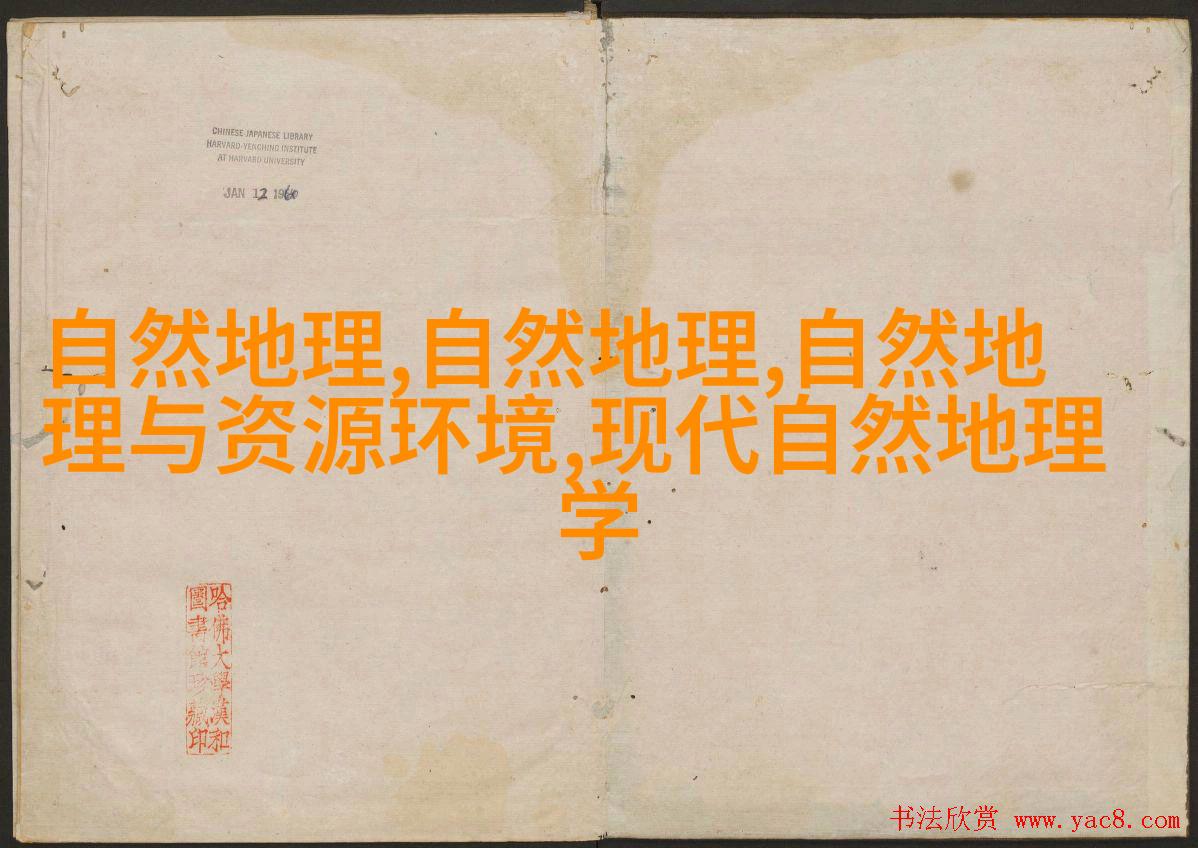 CHINESE-JAPANESE LIBRARY
HARVARD-YENCHING INSTITUTE
AT HARVARD UNIVERSITY
JAN 12 1960
自然地理,自然地理,自然地
理与资源环境,现代自然地理
学
哈佛大學漢和
圖書館珍藏印
书法欣赏 www.yac8.com